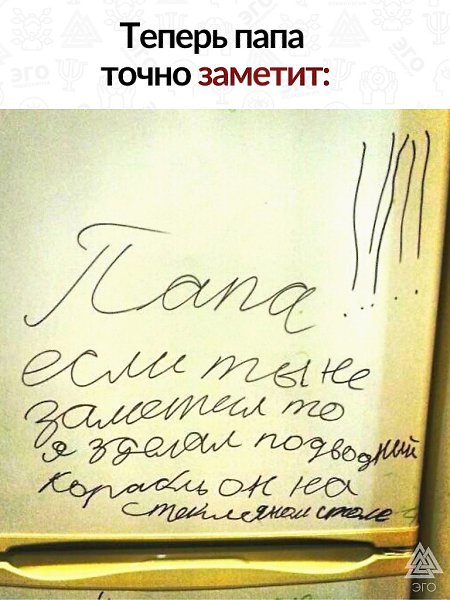 Теперь папа
точно заметит:
Папа !!!!!
если ты не
заметил то
я зделал подводний
корабль он на
стеклянам столе
ЭГО